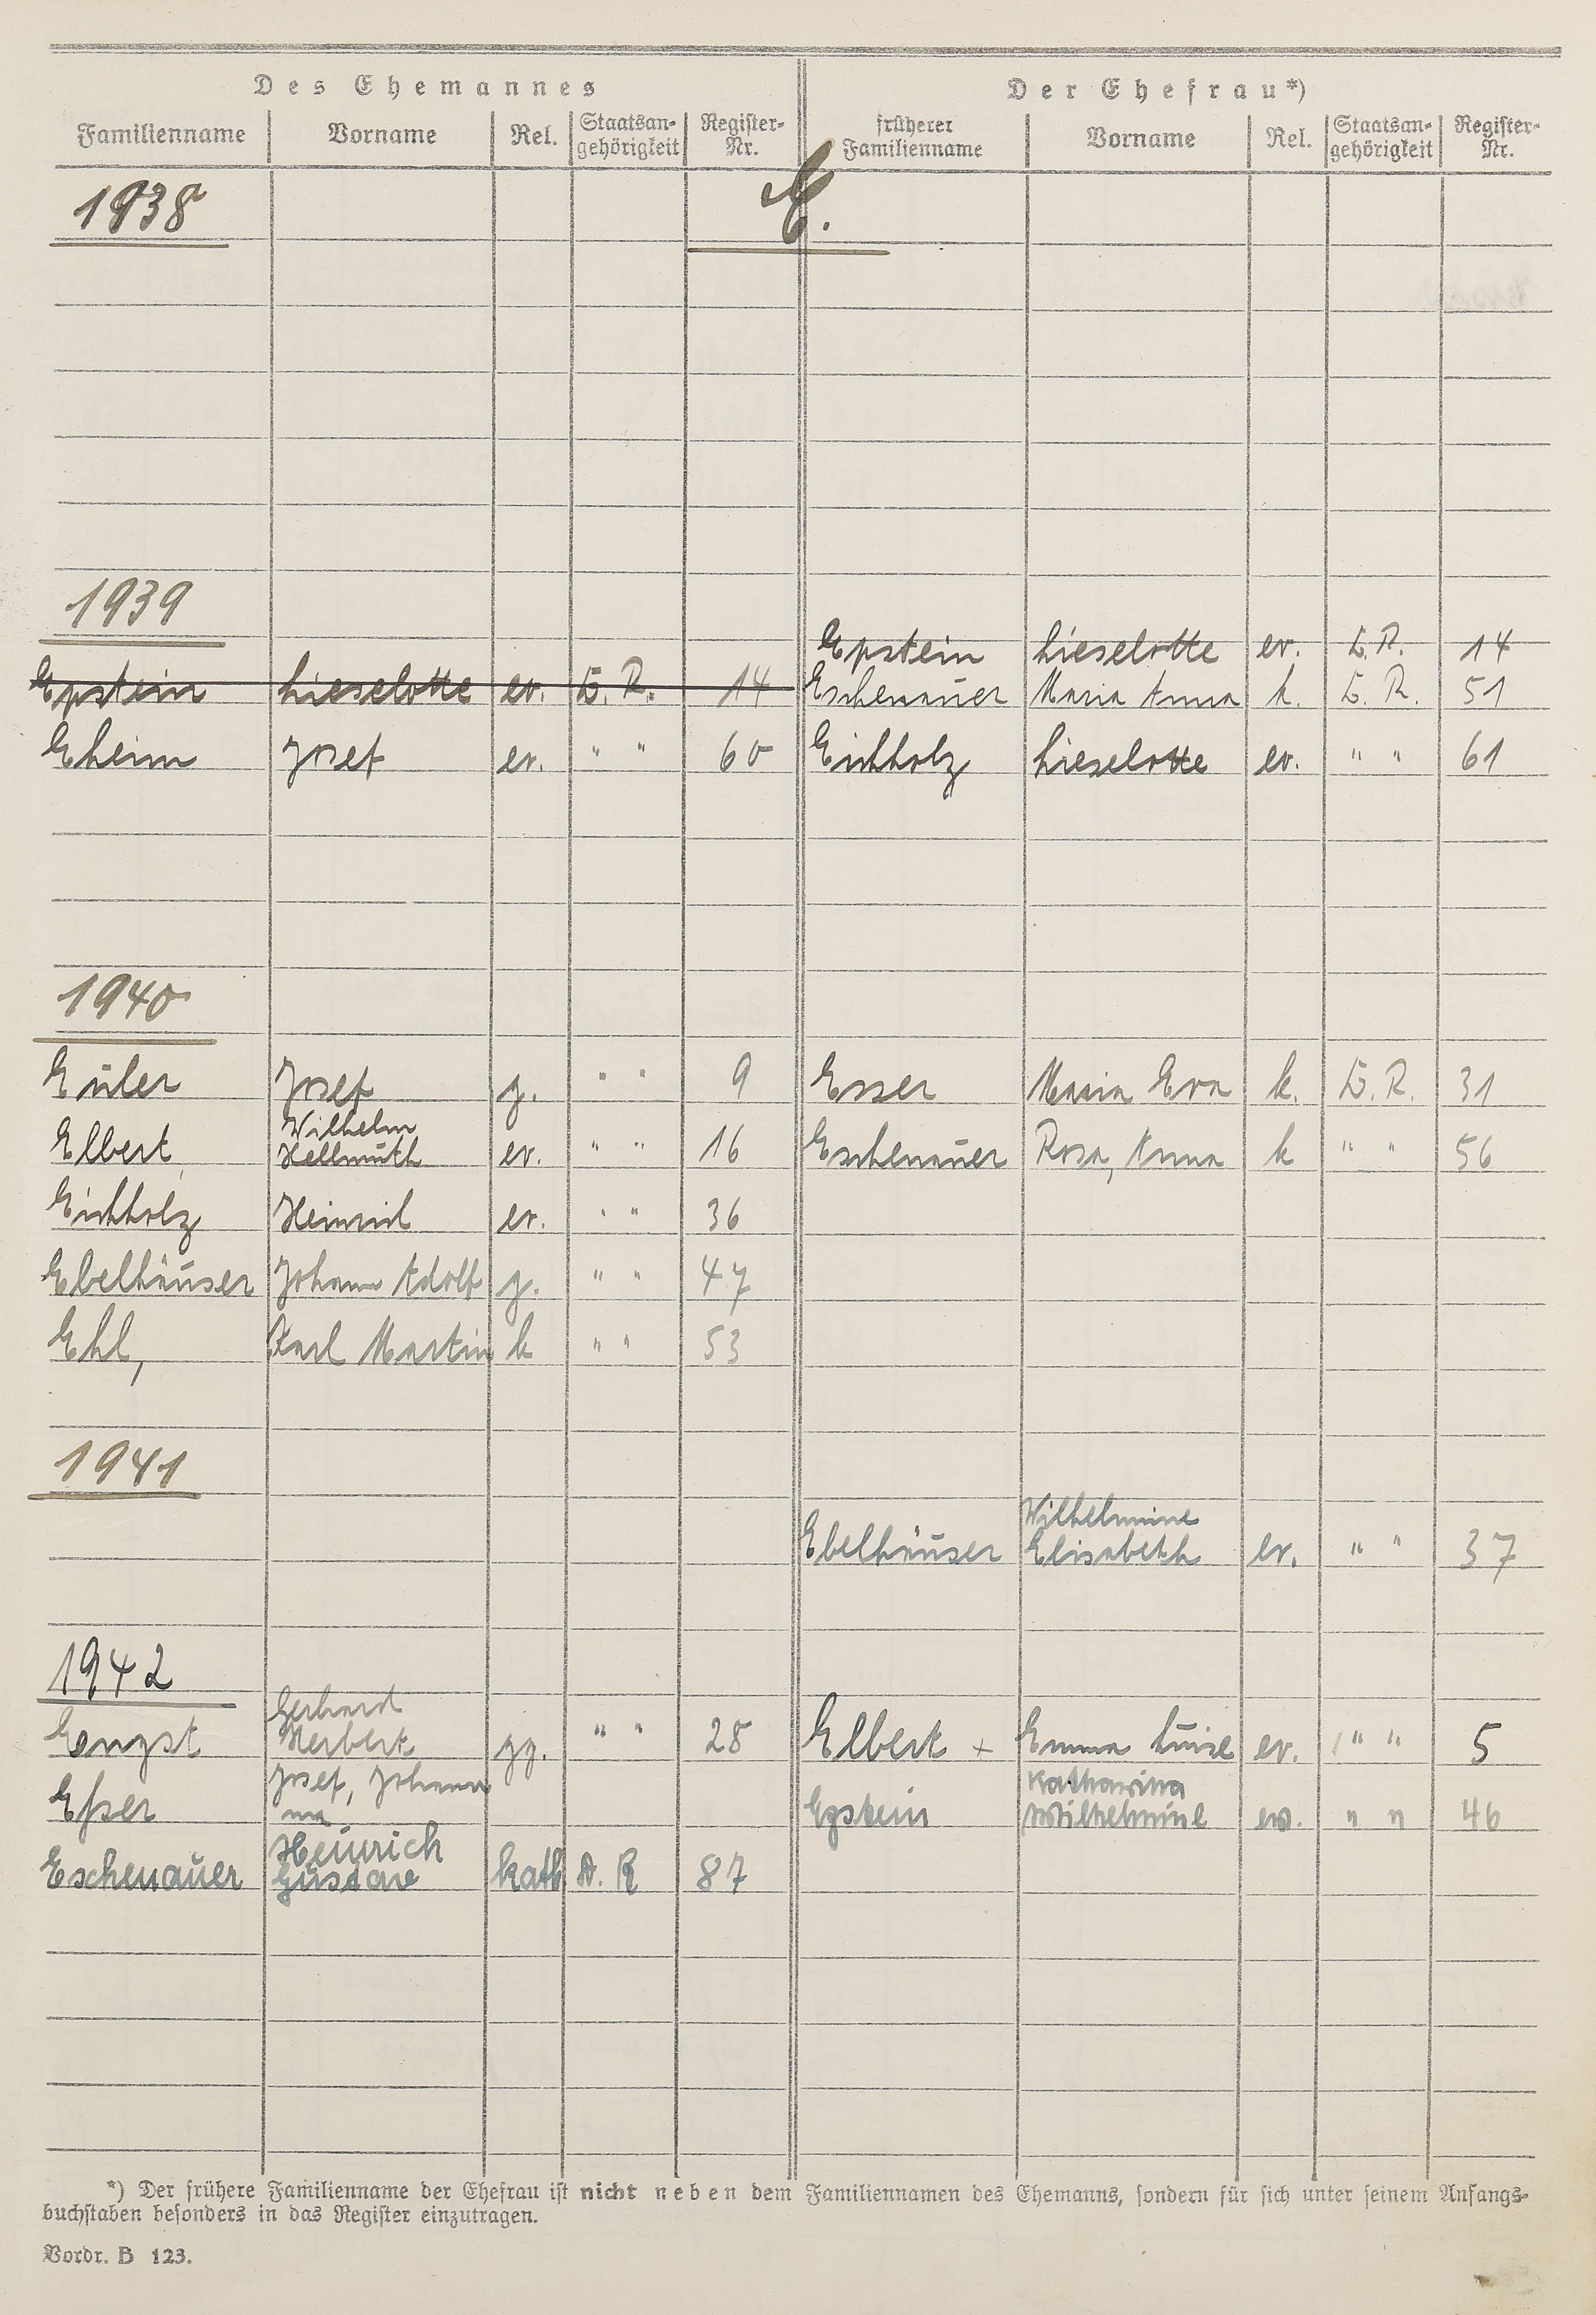 Des Ehemannes Der Ehefrau*)
Familienname Vorname Rel. Staatsan-gehörigkeit Register-Nr. früherer Familienname Vorname Rel. Staatsan-gehörigkeit Register-Nr.
1938 E.
1939
Epstein Lieselotte ev. D.R. 14
Epstein Lieselotte ev. D.R. 14 Eschenauer Maria Anna k. D.R. 51
Eheim Josef ev. " " 60 Eichholz Lieselotte ev. " " 61
1940
Euler Josef g. " " 9 Esser Maria Eva k. D.R. 31
Elbert Wilhelm Hellmuth ev. " " 16 Eschenauer Rosa, Anna k " " 56
Eichholz Heinrich ev. " " 36
Ebelhäuser Johann Adolf g. " " 47
Ehl, Karl Martin k " " 53
1941
Ebelhäuser Wilhelmine Elisabeth ev. " " 37
1942
Engst Gerhard Herbert gg. " " 28 Elbert + Emma Luise ev. " " 5
Eßer Josef, Johann Epstein Katharina Wilhelmine ev. " " 46
Eschenauer Heinrich Gustav kath D.R 87
*) Der frühere Familienname der Ehefrau ist nicht neben dem Familiennamen des Ehemanns, sondern für sich unter seinem Anfangs-
buchstaben besonders in das Register einzutragen.
Vordr. B 123.